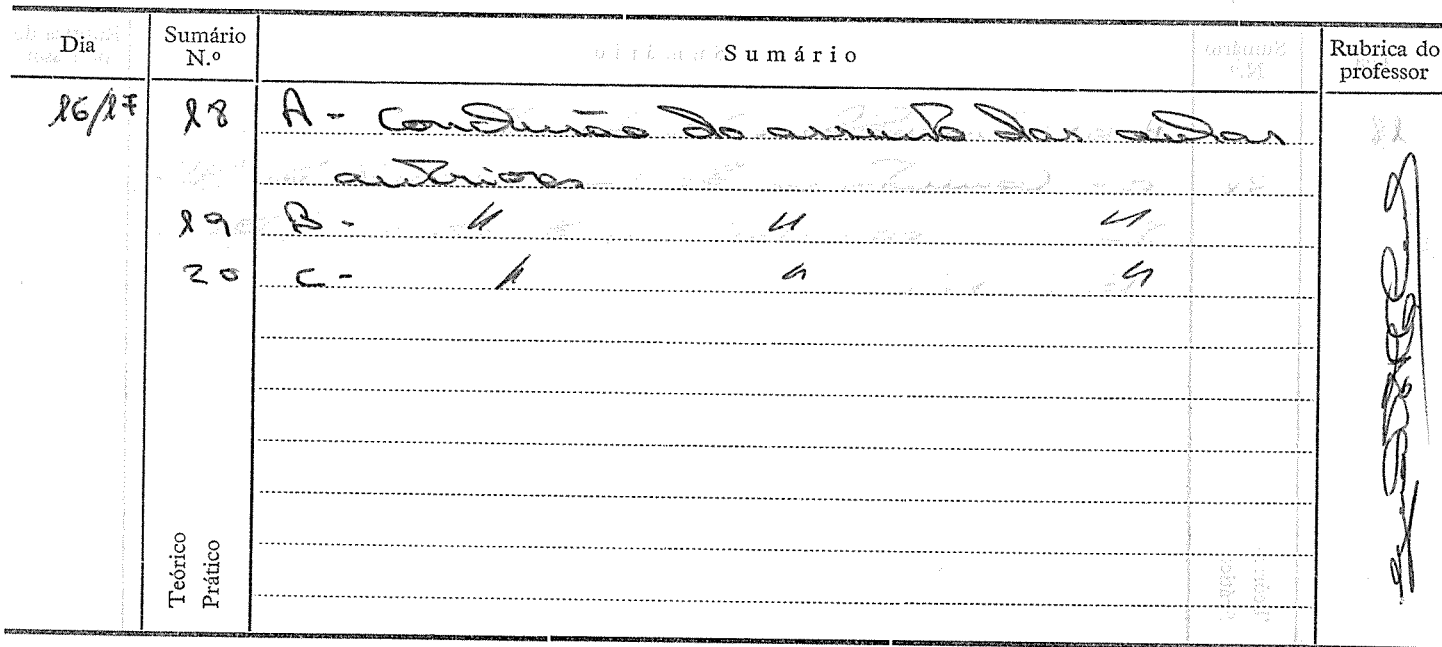 Dia Sumário N.º Sumário Rubrica do professor
16/17 18 A - Conclusão do assunto das aulas
anteriores
19 B - " " "
20 C - " " "
Teórico
Prático